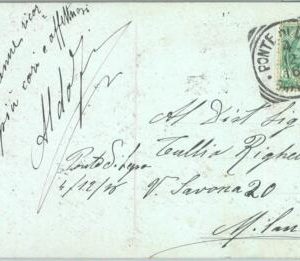 più cari e affettuosi
Aldo
Ponte S.
4/12/
PONTE
Al Dist Sig
Tullio Righe
V. Savona 20
Milan